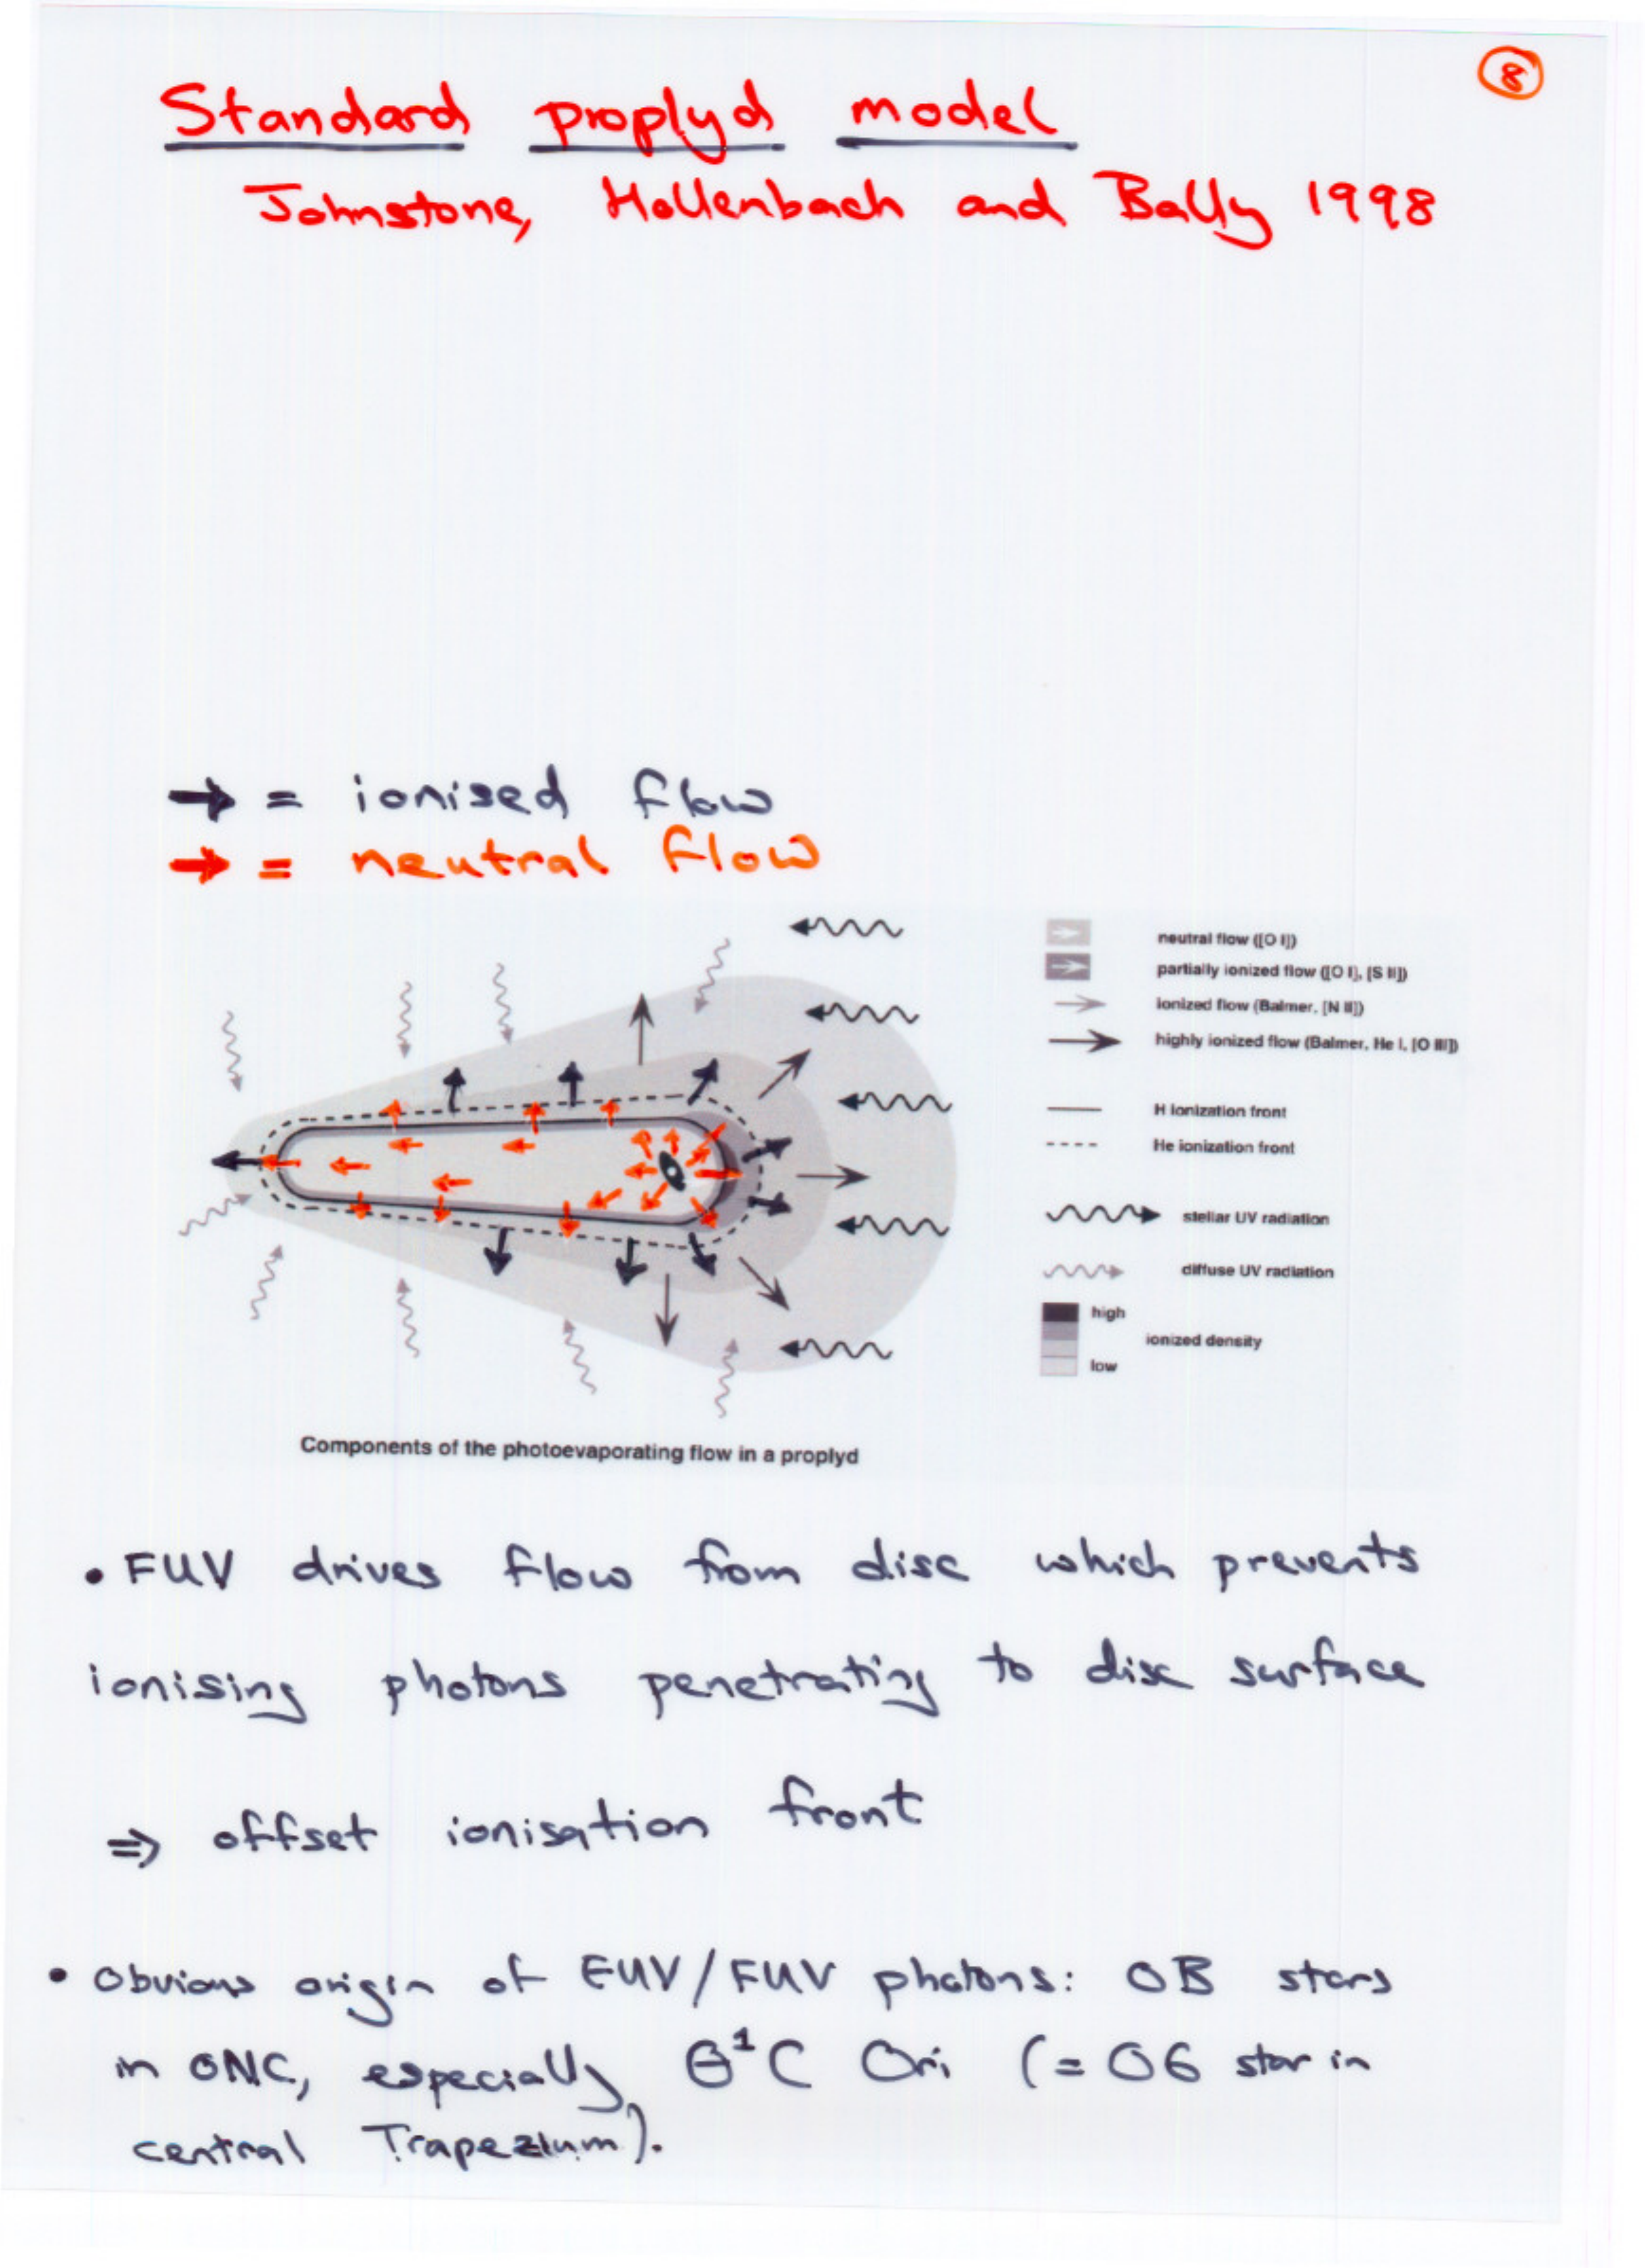 8
Standard proplyd model
Johnstone, Hollenbach and Bally 1998
→ = ionised flow
→ = neutral flow
neutral flow ([O I])
partially ionized flow ([O I], [S II])
ionized flow (Balmer, [N II])
highly ionized flow (Balmer, He I, [O III])
H ionization front
He ionization front
stellar UV radiation
diffuse UV radiation
high
ionized density
low
Components of the photoevaporating flow in a proplyd
• FUV drives flow from disc which prevents
ionising photons penetrating to disc surface
⇒ offset ionisation front
• Obvious origin of EUV/FUV photons: OB stars
in ONC, especially θ¹C Ori (= O6 star in
central Trapezium).